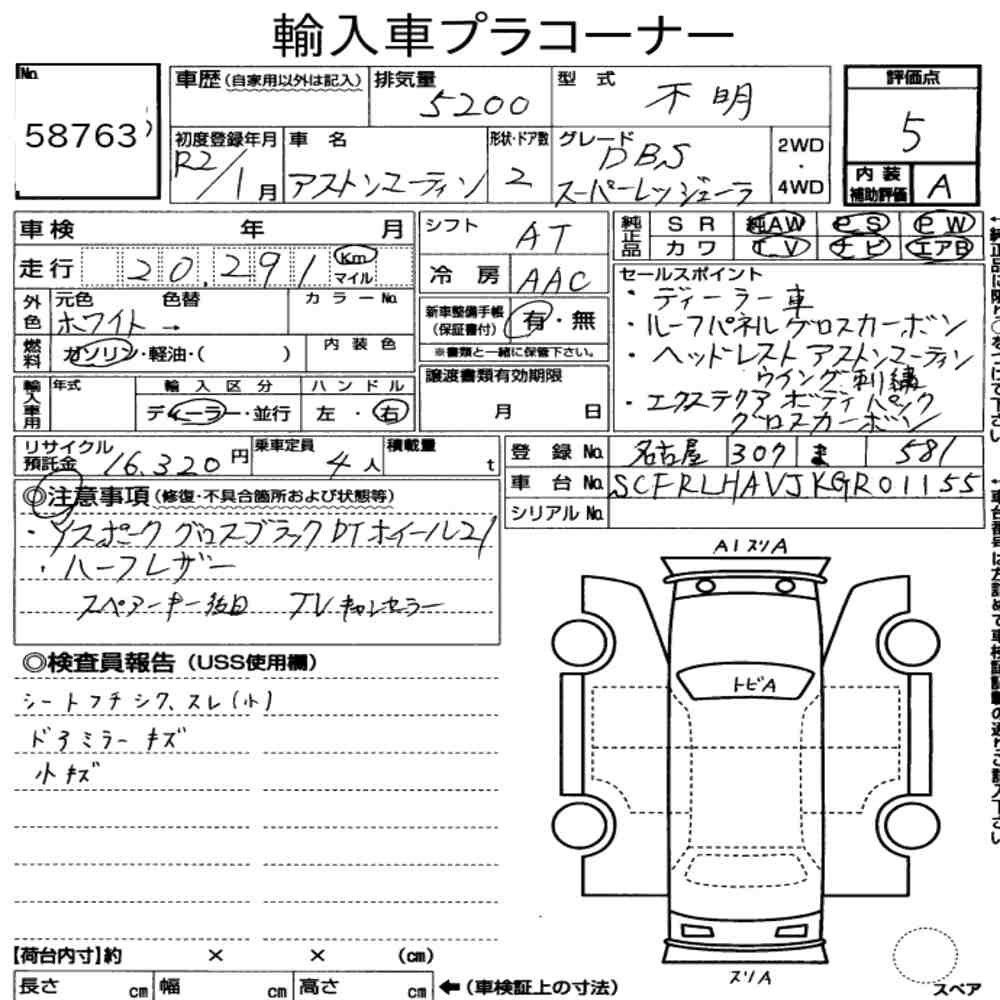 輸入車プラコーナー
No.
58763
車歴(自家用以外は記入)
排気量
5200
型式
不明
初度登録年月
R2/1月
車名
アストンマーティン
形状・ドア数
2
グレード
DBS
スーパーレッジェーラ
2WD
・
4WD
評価点
5
内装
補助評価
A
車検 年 月
走行 20,291 Km
マイル
外色
元色 色替
ホワイト →
カラーNo.
燃料
ガソリン・軽油・( )
内装色
輸入車用
年式
輸入区分
ディーラー・並行
ハンドル
左・右
シフト
AT
冷房
AAC
新車整備手帳
(保証書付)
有・無
※書類と一緒に保管下さい。
譲渡書類有効期限
月 日
純正品
SR 純AW PS PW
カワ TV ナビ エアB
セールスポイント
・ディーラー車
・ルーフパネルグロスカーボン
・ヘッドレスト アストンマーティン
ウイング刺繍
・エクステリア ボディパック
グロスカーボン
リサイクル
預託金
16,320円
乗車定員
4人
積載量
t
登録No.
名古屋 307 ま 581
車台No.
SCFRLHAVJKGR01155
シリアルNo.
◎注意事項(修復・不具合箇所および状態等)
・Yスポーク グロスブラックDTホイール21
・ハーフレザー
スペアーキー後日 TVキャンセラー
◎検査員報告(USS使用欄)
シートフチシワ、スレ(小)
ドアミラーキズ
小キズ
A1スリA
トビA
スリA
スペア
【荷台内寸】約 × × (cm)
長さ cm
幅 cm
高さ cm
←(車検証上の寸法)